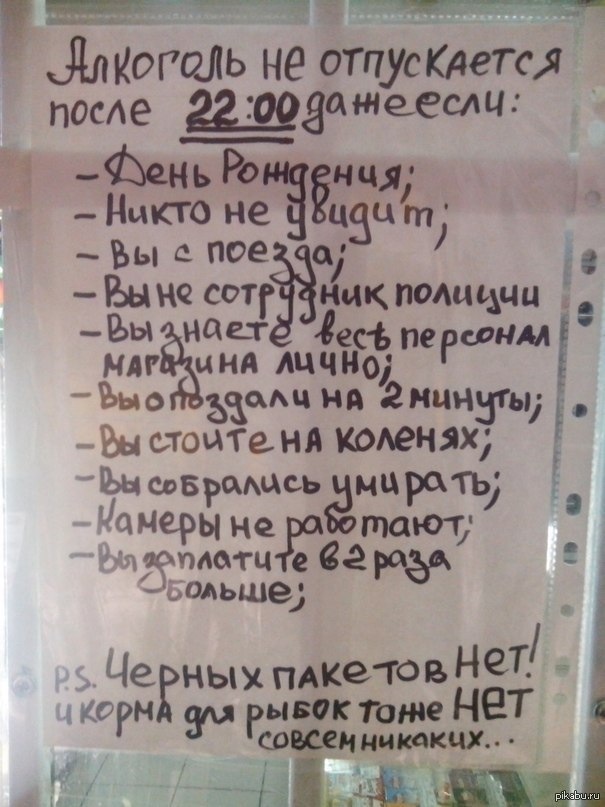 Алкоголь не отпускается
после 22:00 даже если:
- День Рождения;
- Никто не увидит;
- Вы с поезда;
- Вы не сотрудник полиции
- Вы знаете весь персонал
магазина лично;
- Вы опоздали на 2 минуты;
- Вы стоите на коленях;
- Вы собрались умирать;
- Камеры не работают;
- Вы заплатите в 2 раза
больше;
P.S. Черных пакетов НЕТ!
и корма для рыбок тоже НЕТ
совсем никаких...
pikabu.ru